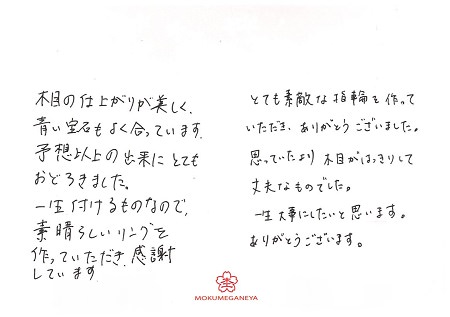 木目の仕上がりが美しく、
青い宝石もよく合っています。
予想以上の出来にとても
おどろきました。
一生付けるものなので、
素晴らしいリングを
作っていただき、感謝
しています
とても素敵な指輪を作って
いただき、ありがとうございました。
思っていたより木目がはっきりして
丈夫なものでした。
一生大事にしたいと思います。
ありがとうございます。
MOKUMEGANEYA